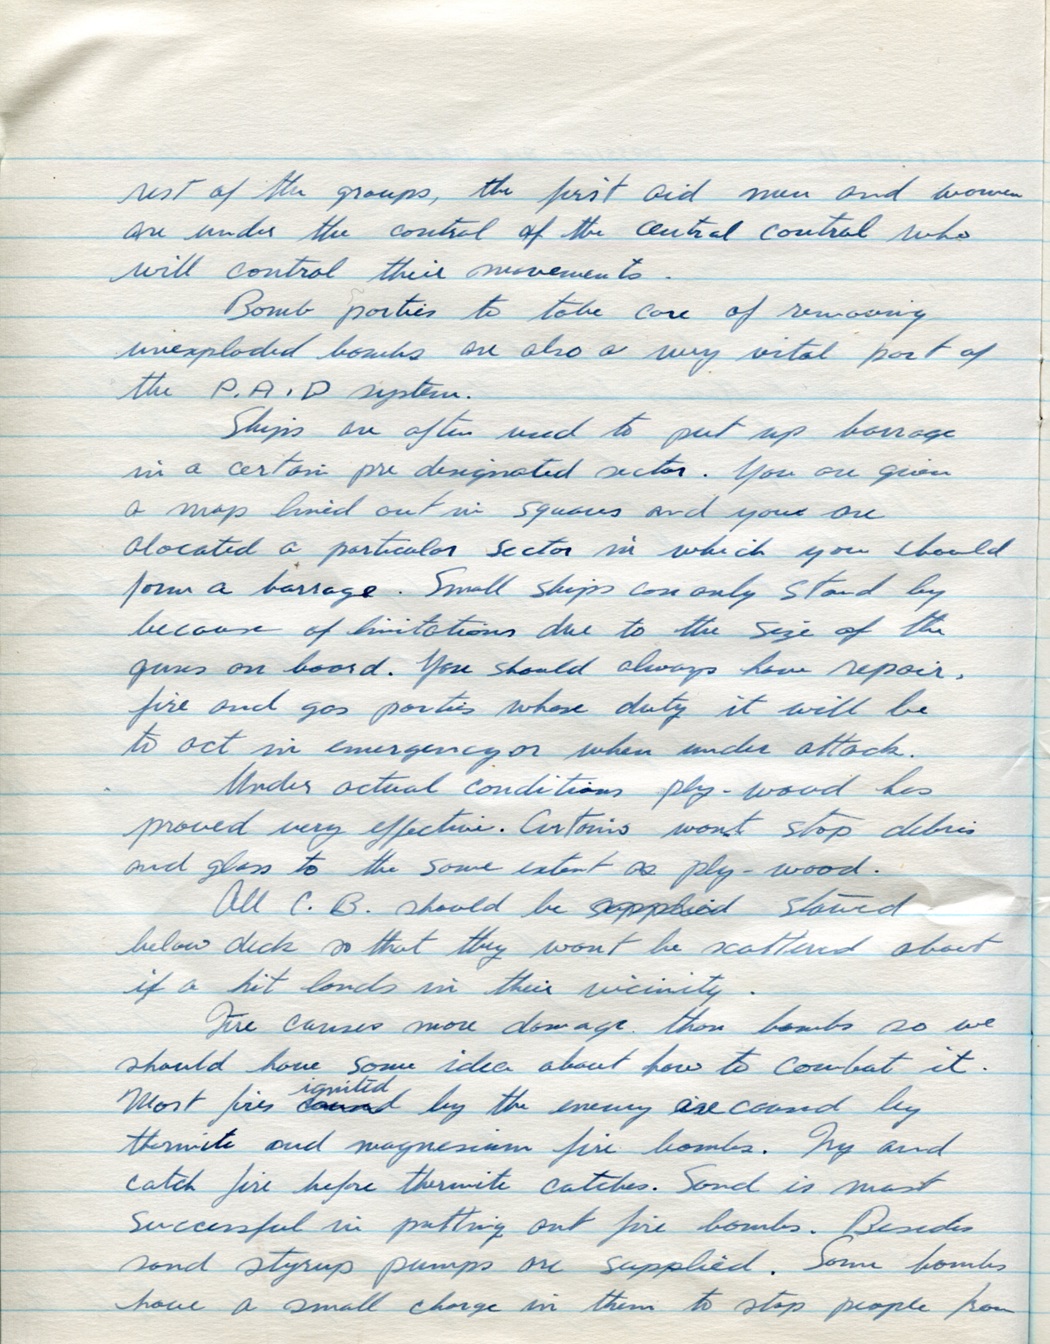 rest of the groups, the first aid men and women
are under the control of the central control who
will control their movements.
Bomb parties to take care of removing
unexploded bombs are also a very vital part of
the P.A.D system.
Ships are often used to put up barrage
in a certain pre designated sector. You are given
a map lined out in squares and you are
alocated a particular sector in which you should
form a barrage. Small ships can only stand by
because of limitations due to the size of the
guns on board. You should always have repair,
fire and gas parties whose duty it will be
to act in emergency or when under attack.
Under actual conditions ply-wood has
proved very effective. Curtains wont stop debris
and glass to the same extent as ply-wood.
All C.B. should be supplied stowed
below deck so that they wont be scattered about
if a hit lands in their vicinity.
Fire causes more damage than bombs so we
should have some idea about how to combat it.
ignited
Most fires caused by the enemy are caused by
thermite and magnesium fire bombs. Try and
catch fire before thermite catches. Sand is most
successful in putting out fire bombs. Besides
sand styrup pumps are supplied. Some bombs
have a small charge in them to stop people from